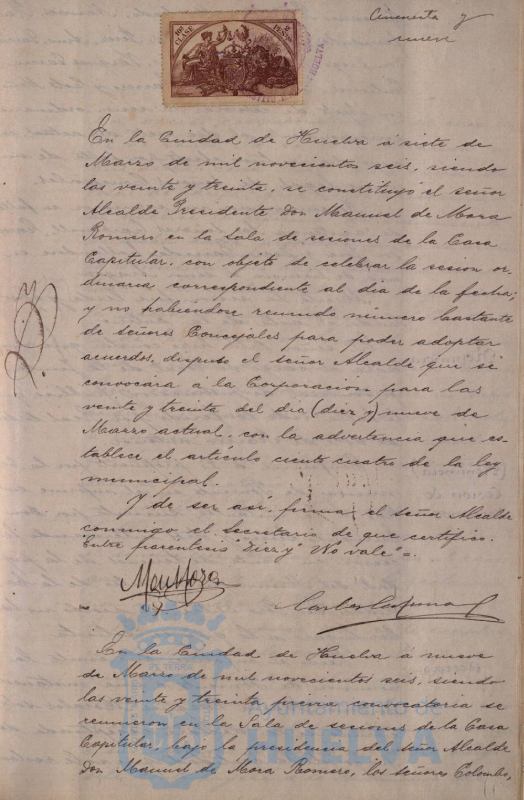 Cincuenta y
nueve
10ª CLASE
2 PESETAS
HUELVA
En la Ciudad de Huelva á siete de
Marzo de mil novecientos seis, siendo
las veinte y treinta, se constituyó el señor
Alcalde Presidente Don Manuel de Mora
Romero en la Sala de sesiones de la Casa
Capitular, con objeto de celebrar la sesion or-
dinaria correspondiente al dia de la fecha;
y no habiéndose reunido número bastante
de señores Concejales para poder adoptar
acuerdos, dispuso el señor Alcalde que se
convocára a la Corporacion para las
veinte y treinta del dia (diez y) nueve de
Marzo actual, con la advertencia que es-
tablece el artículo ciento cuatro de la ley
municipal.
Y de ser así, firma el señor Alcalde
conmigo el secretario de que certifico.
"Entre parentesis "diez y" No vale"=.
En la Ciudad de Huelva á nueve
de Marzo de mil novecientos seis, siendo
las veinte y treinta, previa convocatoria se
reunieron en la Sala de sesiones de la Casa
Capitular, bajo la presidencia del señor Alcalde
Don Manuel de Mora Romero, los señores Colombo,
Ayuntamiento de
HUELVA